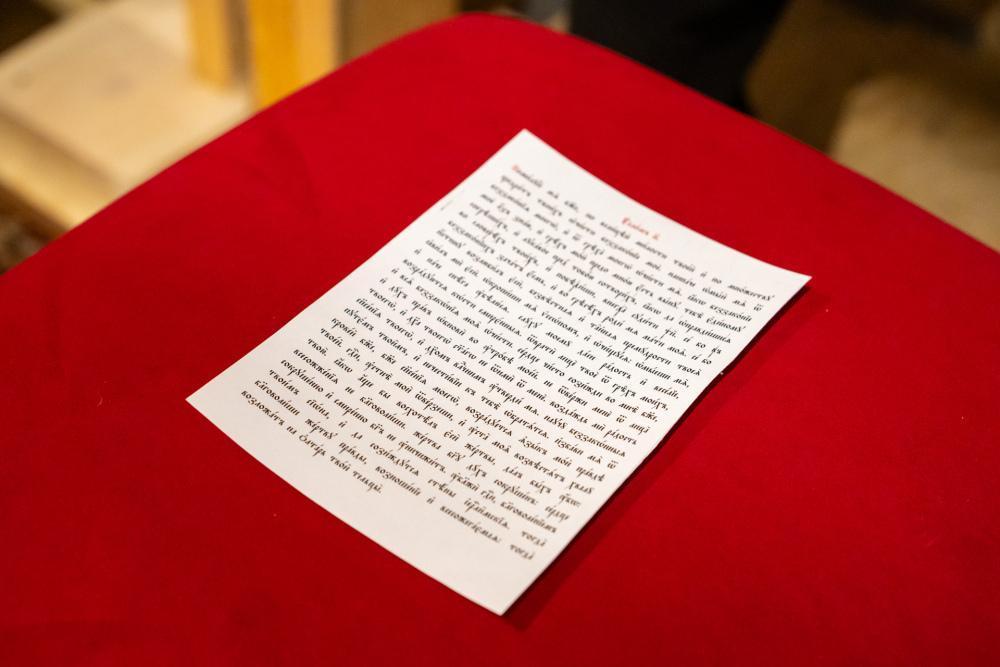 Ѱало́мъ н҃.
Поми́лꙋй мѧ̀ бж҃е, по вели́цѣй ми́лости твое́й, и҆ по мно́жествꙋ
щедро́тъ твои́хъ ѡ҆чи́сти беззако́нїе моѐ. наипа́че ѡ҆мы́й мѧ̀ ѿ
беззако́нїѧ моегѡ̀, и҆ ѿ грѣха̀ моегѡ̀ ѡ҆чи́сти мѧ̀. ꙗ҆́кѡ беззако́нїе
моѐ а҆́зъ зна́ю, и҆ грѣ́хъ мо́й предо мно́ю є҆́сть вы́нꙋ. тебѣ̀ є҆ди́номꙋ
согрѣши́хъ, и҆ лꙋка́вое пред̾ тобо́ю сотвори́хъ, ꙗ҆́кѡ да ѡ҆правди́шисѧ
во словесѣ́хъ твои́хъ, и҆ побѣди́ши, внегда̀ сꙋди́ти тѝ. се́ бо въ
беззако́нїихъ зача́тъ є҆́смь, и҆ во грѣсѣ́хъ родѝ мѧ ма́ти моѧ̀. се́ бо
и҆́стинꙋ возлюби́лъ є҆сѝ, безвѣ̑стнаѧ и҆ та̑йнаѧ премꙋ́дрости твоеѧ̀
ꙗ҆ви́лъ мѝ є҆сѝ. ѡ҆кропи́ши мѧ̀ и҆ссѡ́помъ, и҆ ѡ҆чи́щꙋсѧ. ѡ҆мы́еши мѧ̀,
и҆ па́че снѣ́га ᲂу҆бѣлю́сѧ. слꙋ́хꙋ моемꙋ̀ да́си ра́дость и҆ весе́лїе,
возра́дꙋютсѧ кѡ́сти смирє́нныѧ. ѿвратѝ лицѐ твоѐ ѿ грѣ̑хъ мои́хъ,
и҆ всѧ̑ беззакѡ́нїѧ моѧ̑ ѡ҆чи́сти. се́рдце чи́сто сози́жди во мнѣ̀ бж҃е,
и҆ дꙋ́хъ пра́въ ѡ҆бновѝ во ᲂу҆тро́бѣ мое́й. не ѿве́ржи менѐ ѿ лица̀
твоегѡ̀, и҆ дх҃а твоегѡ̀ ст҃а́гѡ не ѿимѝ ѿ менѐ. возда́ждь мѝ ра́дость
сп҃се́нїѧ твоегѡ̀, и҆ дх҃омъ влⷣчнимъ ᲂу҆твердѝ мѧ. наꙋчꙋ̀ беззакѡ́нныѧ
пꙋтє́мъ твои̑мъ, и҆ нечести́вїи къ тебѣ̀ ѡ҆братѧ́тсѧ. и҆зба́ви мѧ̀ ѿ
крове́й бж҃е, бж҃е сп҃се́нїѧ моегѡ̀, возра́дꙋетсѧ ѧ҆зы́къ мо́й пра́вдѣ
твое́й. гдⷭ҇и, ᲂу҆стнѣ̀ моѝ ѿве́рзеши, и҆ ᲂу҆ста̀ моѧ̑ возвѣстѧ́тъ хвалꙋ̀
твою̀. ꙗ҆́кѡ а҆́ще бы восхотѣ́лъ є҆сѝ же́ртвы, да́лъ бы́хъ ᲂу҆́бѡ:
всесожже́нїѧ не бл҃говоли́ши. же́ртва бг҃ꙋ дꙋ́хъ сокрꙋше́нъ: се́рдце
сокрꙋше́нно и҆ смире́нно бг҃ъ не ᲂу҆ничижи́тъ. ᲂу҆блажѝ гдⷭ҇и, бл҃говоле́нїемъ
твои́мъ сїѡ́на, и҆ да сози́ждꙋтсѧ стѣ́ны і҆ерⷭ҇ли̑мскїѧ. тогда̀
бл҃говоли́ши же́ртвꙋ пра́вды, возноше́нїе и҆ всесожега́емаѧ: тогда̀
возложа́тъ на ѻ҆лта́рь тво́й тельцы̀.